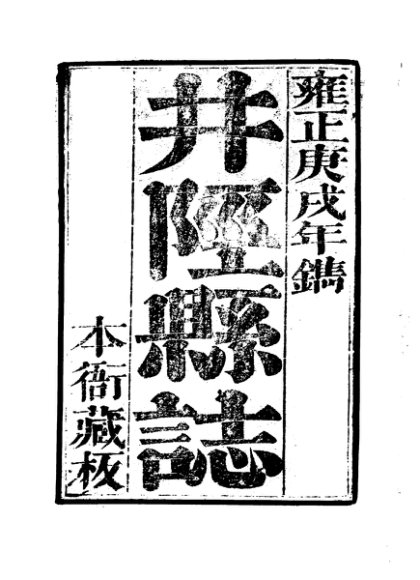 雍正庚戌年鐫
井陘縣誌
本衙藏板